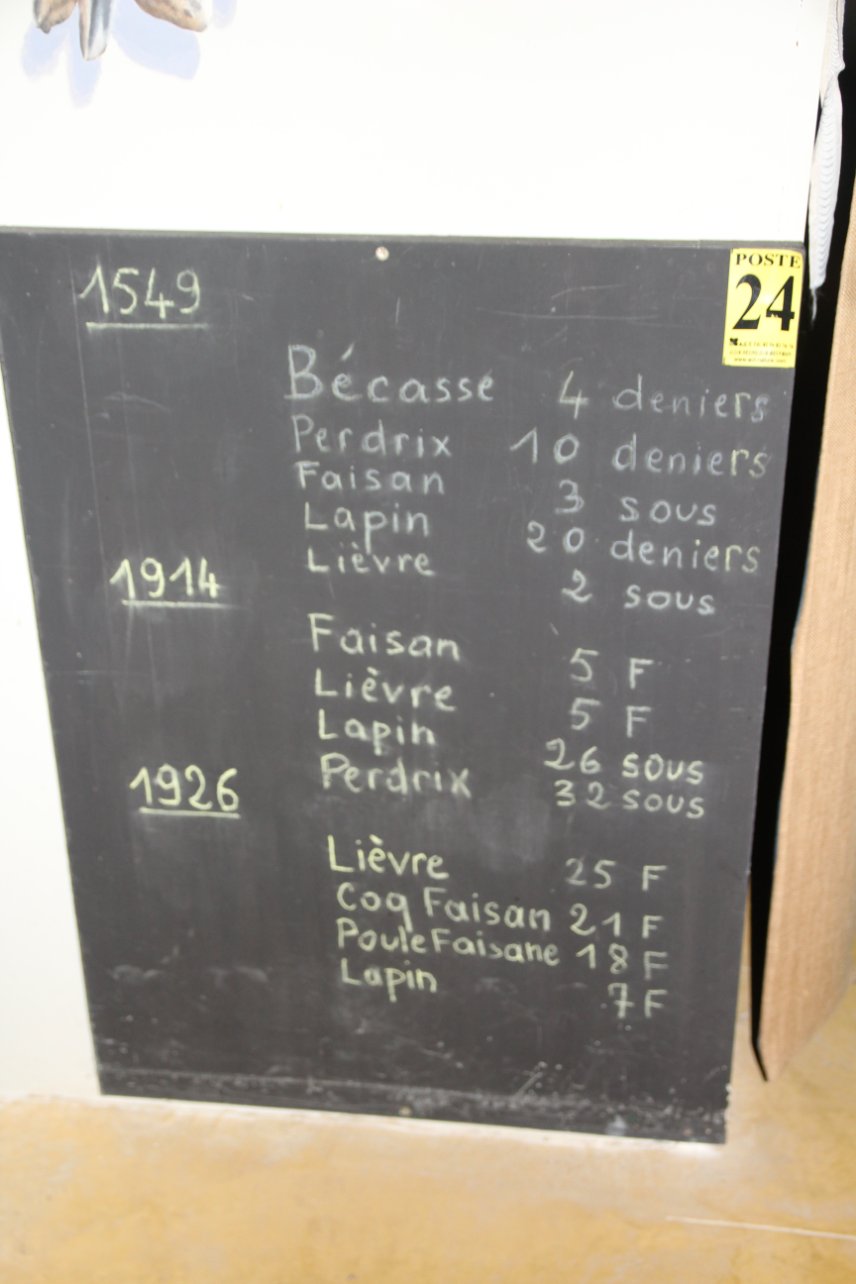 1549
POSTE
24
Bécasse 4 deniers
Perdrix 10 deniers
Faisan 3 sous
Lapin 20 deniers
Lièvre 2 sous
1914
Faisan 5 F
Lièvre 5 F
Lapin 26 sous
Perdrix 32 sous
1926
Lièvre 25 F
Coq Faisan 21 F
Poule Faisane 18 F
Lapin 7 F